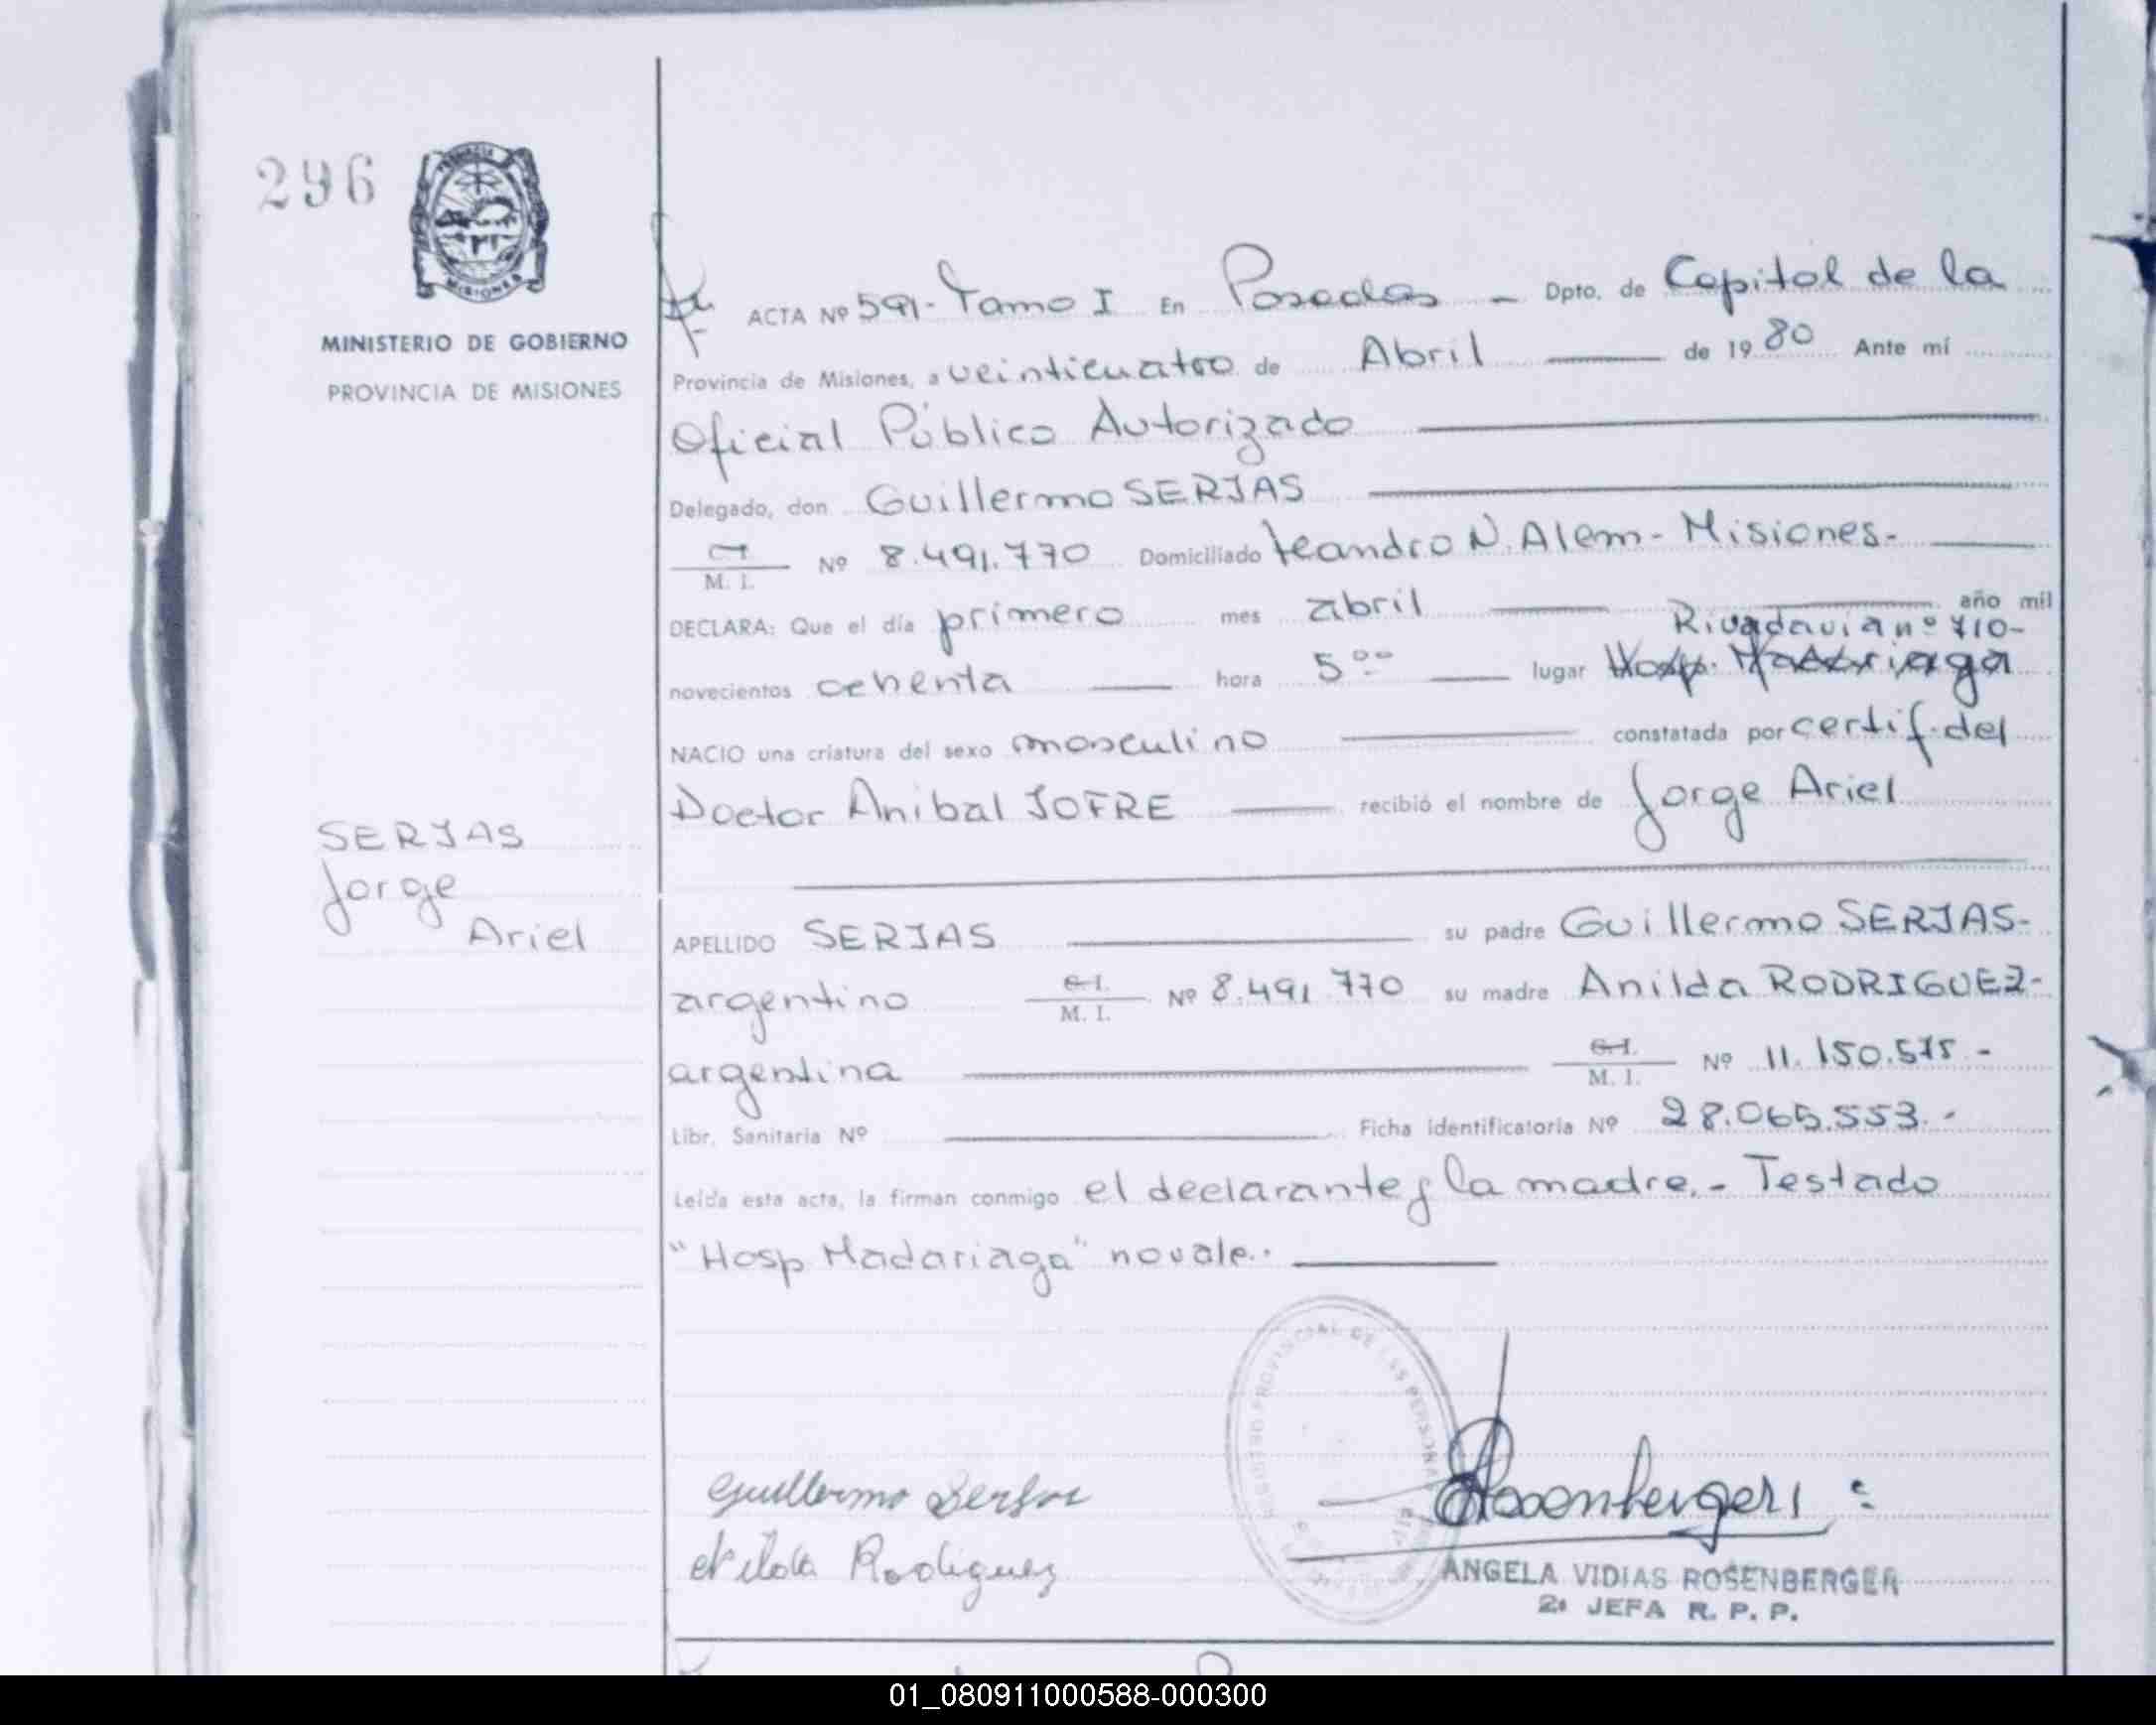 296
PROVINCIA
MISIONES
MINISTERIO DE GOBIERNO
PROVINCIA DE MISIONES
ACTA Nº 591- Tomo I En Posadas - Dpto. de Capital de la
Provincia de Misiones, a veinticuatro de Abril de 1980 Ante mí
Oficial Público Autorizado
Delegado, don Guillermo SERJAS
M. I. Nº 8.491.770 Domiciliado Leandro N. Alem - Misiones.-
DECLARA: Que el día primero mes abril año mil
Rivadavia nº 710-
novecientos ochenta hora 5 ºº lugar Hosp. Madariaga
NACIO una criatura del sexo masculino constatada por certif. del
Doctor Anibal JOFRE recibió el nombre de Jorge Ariel
SERJAS
Jorge
Ariel
APELLIDO SERJAS su padre Guillermo SERJAS-
argentino C.I. M. I. Nº 8.491.770 su madre Anilda RODRIGUEZ-
argentina C.I. M. I. Nº 11.150.515.-
Libr. Sanitaria Nº Ficha identificatoria Nº 28.065.553.-
Leída esta acta, la firman conmigo el declarante y la madre.- Testado
"Hosp Madariaga" no vale.-
REGISTRO PROVINCIAL DE LAS PERSONAS
Guillermo Serjas
Rodriguez
Rosenberger
ANGELA VIDIAS ROSENBERGER
2ª JEFA R. P. P.
01_080911000588-000300